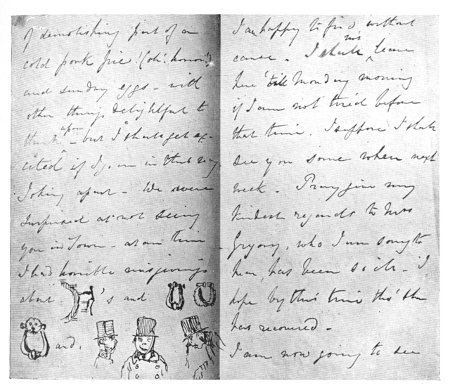 of demolishing part of a
cold pork pie! (oh! horror!)
and sundry eggs - with
other things delightful to
think upon - but I shall get ex-
cited if I go on in this way.
Joking apart - We were
surprised at not seeing
you in Town - at one time
I had horrible misgivings
about 's and
and.
I am happy to find without
cause. I shall not leave
here 'till Monday morning
if I am not tired before
that time. I suppose I shall
see you some when next
week. Pray give my
kindest regards to Mrs
Gregory, who I am sorry to
hear, has been sick. I
hope by this time tho' she
has recovered -
I am now going to see